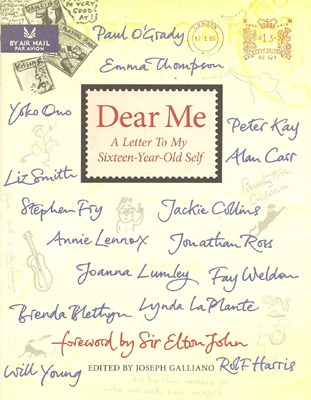 BY AIR MAIL
PAR AVION
Paul O'Grady
Emma Thompson
Yoko Ono
Dear Me
A Letter To My
Sixteen-Year-Old Self
Peter Kay
Alan Carr
Liz Smith
Stephen Fry
Jackie Collins
Annie Lennox
Jonathan Ross
Joanna Lumley
Fay Weldon
Brenda Blethyn
Lynda La Plante
foreword by Sir Elton John
EDITED BY JOSEPH GALLIANO
Will Young
Rolf Harris